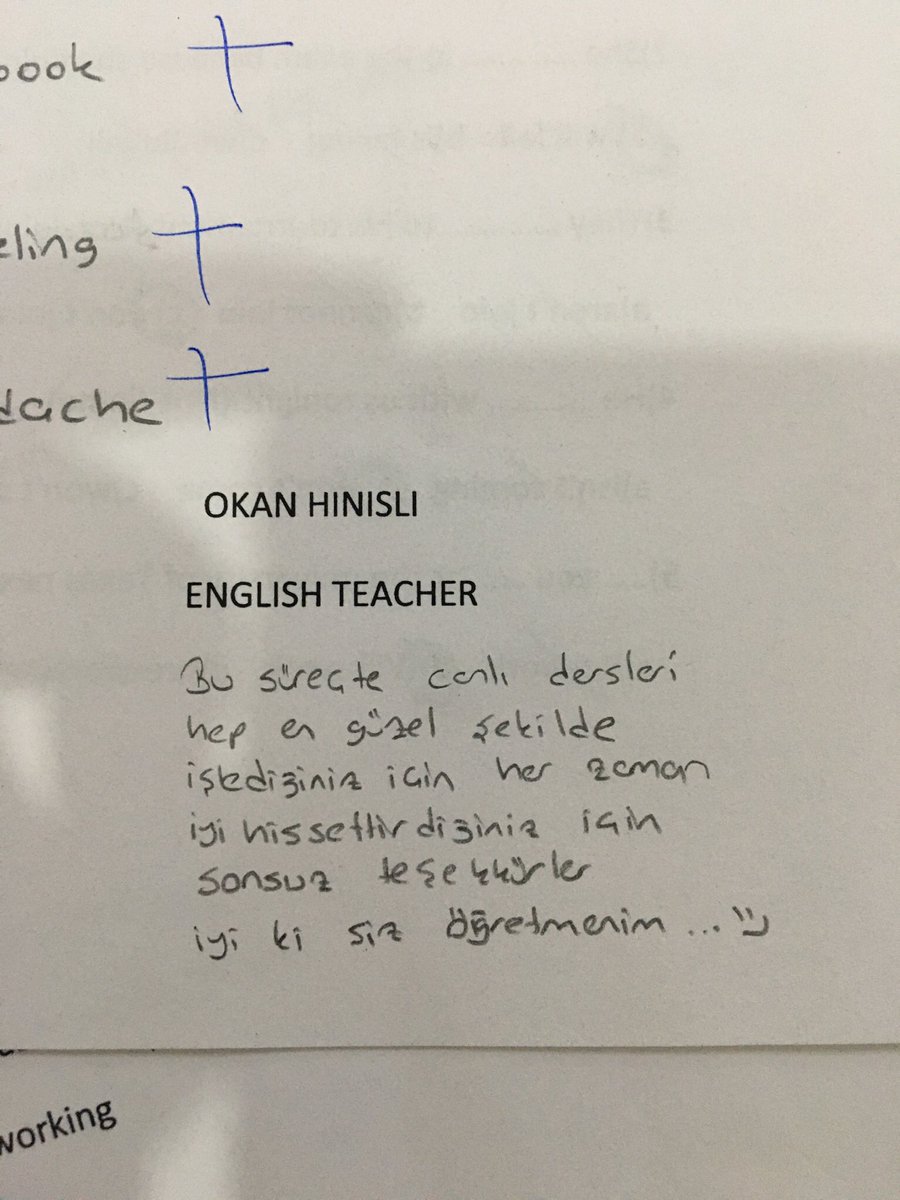 book +
eling +
dache +
OKAN HINISLI
ENGLISH TEACHER
Bu süreçte canlı dersleri
hep en güzel şekilde
işlediğiniz için her zaman
iyi hissettirdiğiniz için
sonsuz teşekkürler
iyi ki siz öğretmenim... :)
working